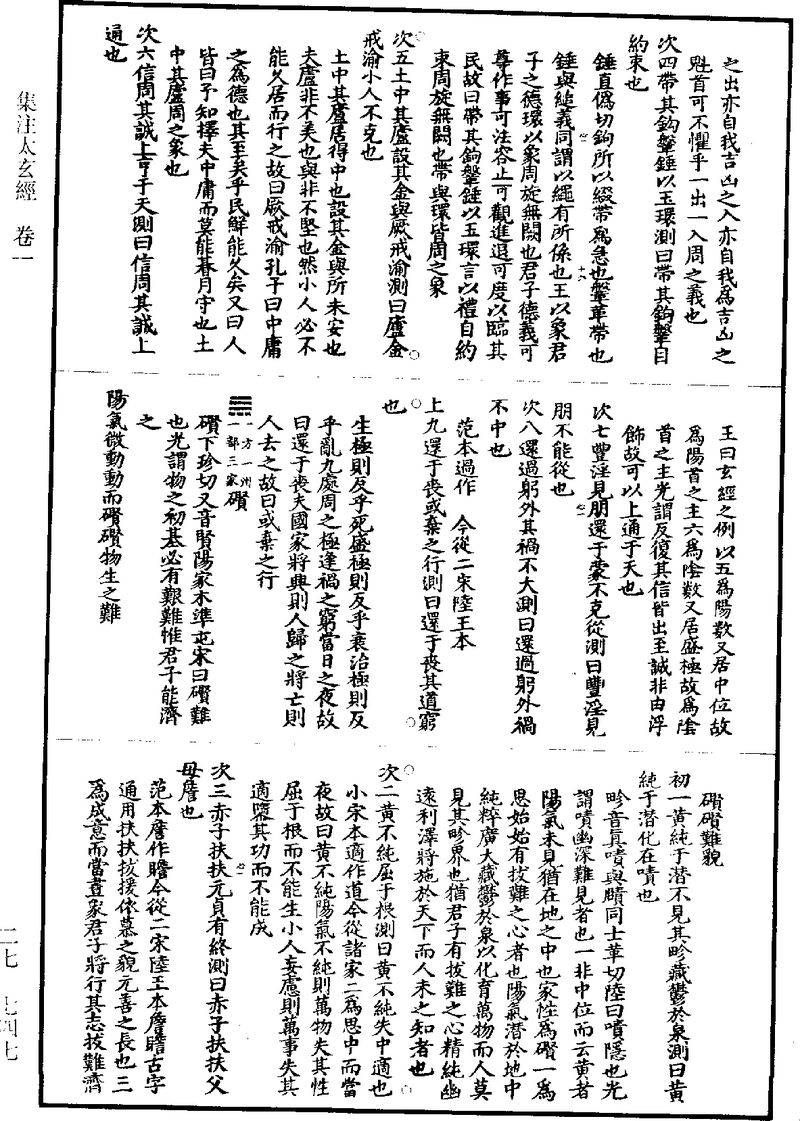 集注太玄經　卷一
之出亦自我吉凶之入亦自我爲吉凶之
魁首可不懼乎一出一入周之義也
次四帶其鉤鞶錘以玉環測曰帶其鉤鞶自
約束也
錘直僞切鉤所以綴帶爲急也鞶革帶也
錘與縋義同謂以繩有所係也王以象君
子之德環以象周旋無闕也君子德義可
尊作事可法容止可觀進退可度以臨其
民故曰帶其鉤鞶錘以玉環言以禮自約
束周旋無闕也帶與環皆周之象
次五土中其廬設其金與厥戒渝測曰廬金
戒渝小人不克也
土中其廬居得中也設其金與所未安也
夫廬非不美也與非不堅也然小人必不
能久居而行之故曰厥戒渝孔子曰中庸
之爲德也其至矣乎民鮮能久矣又曰人
皆曰予知擇夫中庸而莫能朞月守也土
中其廬周之象也
次六信周其誠上亨于天測曰信周其誠上
通也
王曰玄經之例以五爲陽數又居中位故
爲陽首之主六爲陰數又居盛極故爲陰
首之主光謂反復其信皆出至誠非由浮
飾故可以上通于天也
次七豐淫見朋還于蒙不克從測曰豐淫見
朋不能從也
次八還過躬外其禍不大測曰還過躬外禍
不中也
范本過作　今從二宋陸王本
上九還于喪或棄之行測曰還于喪其道窮
也
生極則反乎死盛極則反乎衰治極則反
乎亂九處周之極逢禍之窮當日之夜故
曰還于喪夫國家將興則人歸之將亡則
人去之故曰或棄之行
一方一州一部三家礥
礥下珍切又音賢陽家木準屯宋曰礥難
也光謂物之初基必有艱難惟君子能濟
之
陽氣微動動而礥礥物生之難
礥礥難貌
初一黃純于潛不見其畛藏鬱於泉測曰黃
純于潛化在嘖也
畛音眞嘖與賾同士革切陸曰嘖隱也光
謂嘖幽深難見者也一非中位而云黃者
陽氣未見猶在地之中也家性爲礥一爲
思始始有拔難之心者也陽氣潛於地中
純粹廣大藏鬱於泉以化育萬物而人莫
見其畛界也猶君子有拔難之心精純幽
遠利澤將施於天下而人未之知者也
次二黃不純屈于根測曰黃不純失中適也
小宋本適作道今從諸家二爲思中而當
夜故曰黃不純陽氣不純則萬物失其性
屈于根而不能生小人妄慮則萬事失其
適隳其功而不能成
次三赤子扶扶元貞有終測曰赤子扶扶父
母詹也
范本詹作瞻今從二宋陸王本詹瞻古字
通用扶扶拔援依慕之貌元善之長也三
爲成意而當晝象君子將行其志拔難濟
二七　七四七